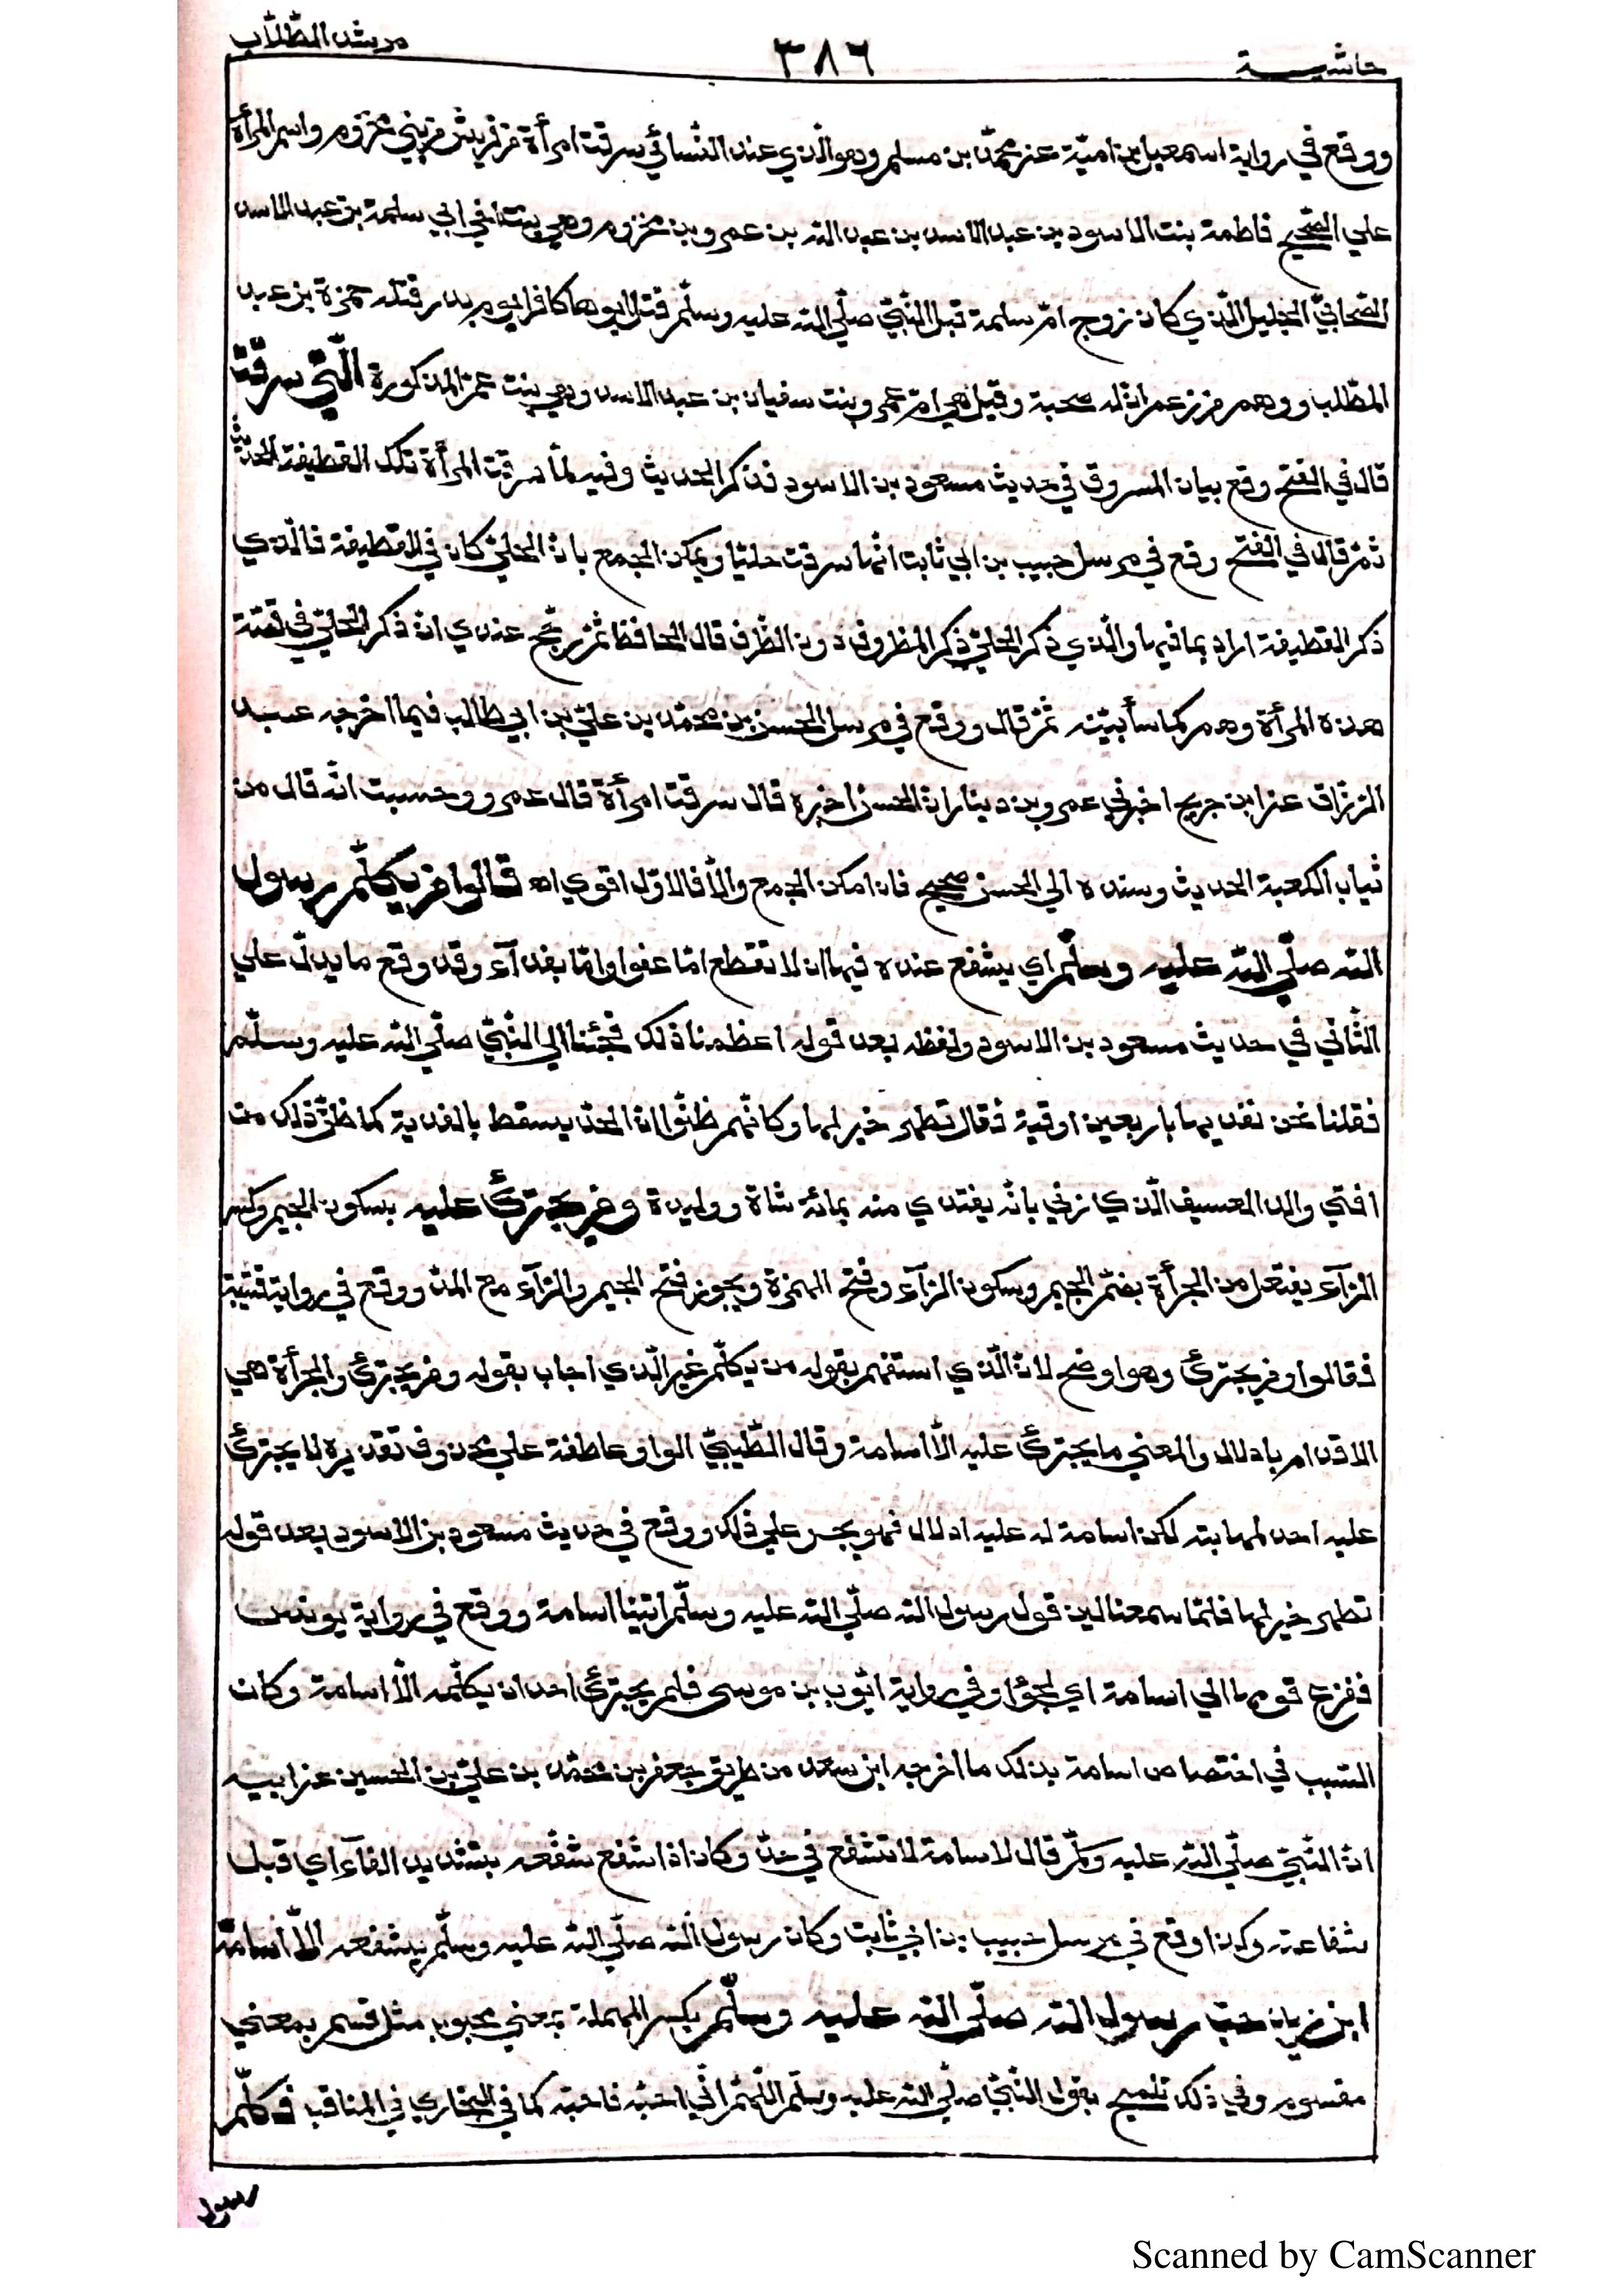 حاشية ٣٨٦ مرشد الطّلّاب
ووقع في رواية اسمعيل بن اميّة عن محمّد بن مسلم وهو الّذي عند النّسائي سرقت امرأة من قريش من بني مخزوم واسم المرأة
علي الصّحيح فاطمة بنت الاسود بن عبد الاسد بن عبد الله بن عمرو بن مخزوم وهي بنت اخي ابي سلمة بن عبد الاسد
الصّحابيّ الجليل الّذي كان زوج امّ سلمة قبل النّبيّ صلّي الله عليه وسلّم قتل ابوها كافرا يوم بدر قتله حمزة بن عبد
المطّلب ووهم من زعم انّ له صحبة وقيل هي امّ عمرو بنت سفيان بن عبد الاسد وهي بنت عمّ المذكورة الّتي سرقت
قال في الفتح وقع بيان المسروق في حديث مسعود بن الاسود فذكر الحديث وفيه لمّا سرقت المرأة تلك القطيفة الحديث
ثمّ قال في الفتح وقع في مرسل حبيب بن ابي ثابت انّها سرقت حليّا ويمكن الجمع بانّ الحليّ كان في القطيفة فالّذي
ذكر القطيفة اراد بما فيها والّذي ذكر الحليّ ذكر المظروف دون الظّرف قال الحافظ ثمّ رجّح عندي انّ ذكر الحليّ في قصّة
هذه المرأة وهم كما سأبيّنه ثمّ قال ووقع في مرسل الحسن بن محمّد بن عليّ بن ابي طالب فيما اخرجه عبد
الرّزاق عن ابن جريج اخبرني عمرو بن دينار انّ الحسن اخبره قال سرقت امرأة قال عمرو وحسبت انّه قال من
ثياب الكعبة الحديث وسنده الي الحسن صحيح فان امكن الجمع والّا فالاوّل اقوي اه قالوا من يكلّم رسول
الله صلّي الله عليه وسلّم اي يشفع عنده فيها ان لا تقطع امّا عفوا وامّا بفدآء وقد وقع ما يدلّ علي
الثّاني في حديث مسعود بن الاسود ولفظه بعد قوله اعظمنا ذلك فجئنا الي النّبيّ صلّي الله عليه وسلّم
فقلنا نحن نفديها باربعين اوقية فقال تطهر خير لها وكانّهم ظنّوا انّ الحدّ يسقط بالفدية كما ظنّ ذلك من
افتي والد العسيف الّذي زني بانّه يفتدي منه بمائة شاة ووليدة ومن يجترئ عليه بسكون الجيم وكسر
الرّآء يفتعل من الجرأة بضمّ الجيم وسكون الرّآء وفتح الهمزة ويجوز فتح الجيم والرّآء مع المدّ ووقع في رواية قتيبة
فقالوا ومن يجترئ وهو اوضح لانّ الّذي استفهم بقوله من يكلّم غير الّذي اجاب بقوله ومن يجترئ والجرأة هي
الاقدام بادلال والمعني ما يجترئ عليه الّا اسامة وقال الطّيبيّ الواو عاطفة علي محذوف تقديره لا يجترئ
عليه احد لمهابته لكن اسامة له عليه ادلال فهو يجسر علي ذلك ووقع في حديث مسعود بن الاسود بعد قوله
تطهر خير لها فلمّا سمعنا لين قول رسول الله صلّي الله عليه وسلّم اتينا اسامة ووقع في رواية يونس
ففزع قومها الي اسامة اي لجؤا وفي رواية ايّوب بن موسي فلم يجترئ احد ان يكلّمه الّا اسامة وكان
السّبب في اختصاص اسامة بذلك ما اخرجه ابن سعد من طريق جعفر بن محمّد بن عليّ بن الحسين عن ابيه
انّ النّبيّ صلّي الله عليه وسلّم قال لاسامة لا تشفع في حدّ وكان اذا شفع شفّعه بتشديد الفآء اي قبل
شفاعته وكذا وقع في مرسل حبيب بن ابي ثابت وكان رسول الله صلّي الله عليه وسلّم يشفعه الّا اسامة
ابن زيد حبّ رسول الله صلّي الله عليه وسلّم بكسر المهملة بمعني محبوب مثل قسم بمعني
مقسوم وفي ذلك تلميح بقول النّبيّ صلّي الله عليه وسلّم اللّهمّ انّي احبّه فاحبّه كما في البخاري في المناقب فكلّم
رسول
Scanned by CamScanner